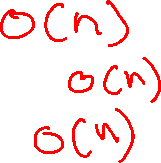 O(n)
O(n)
O(n)